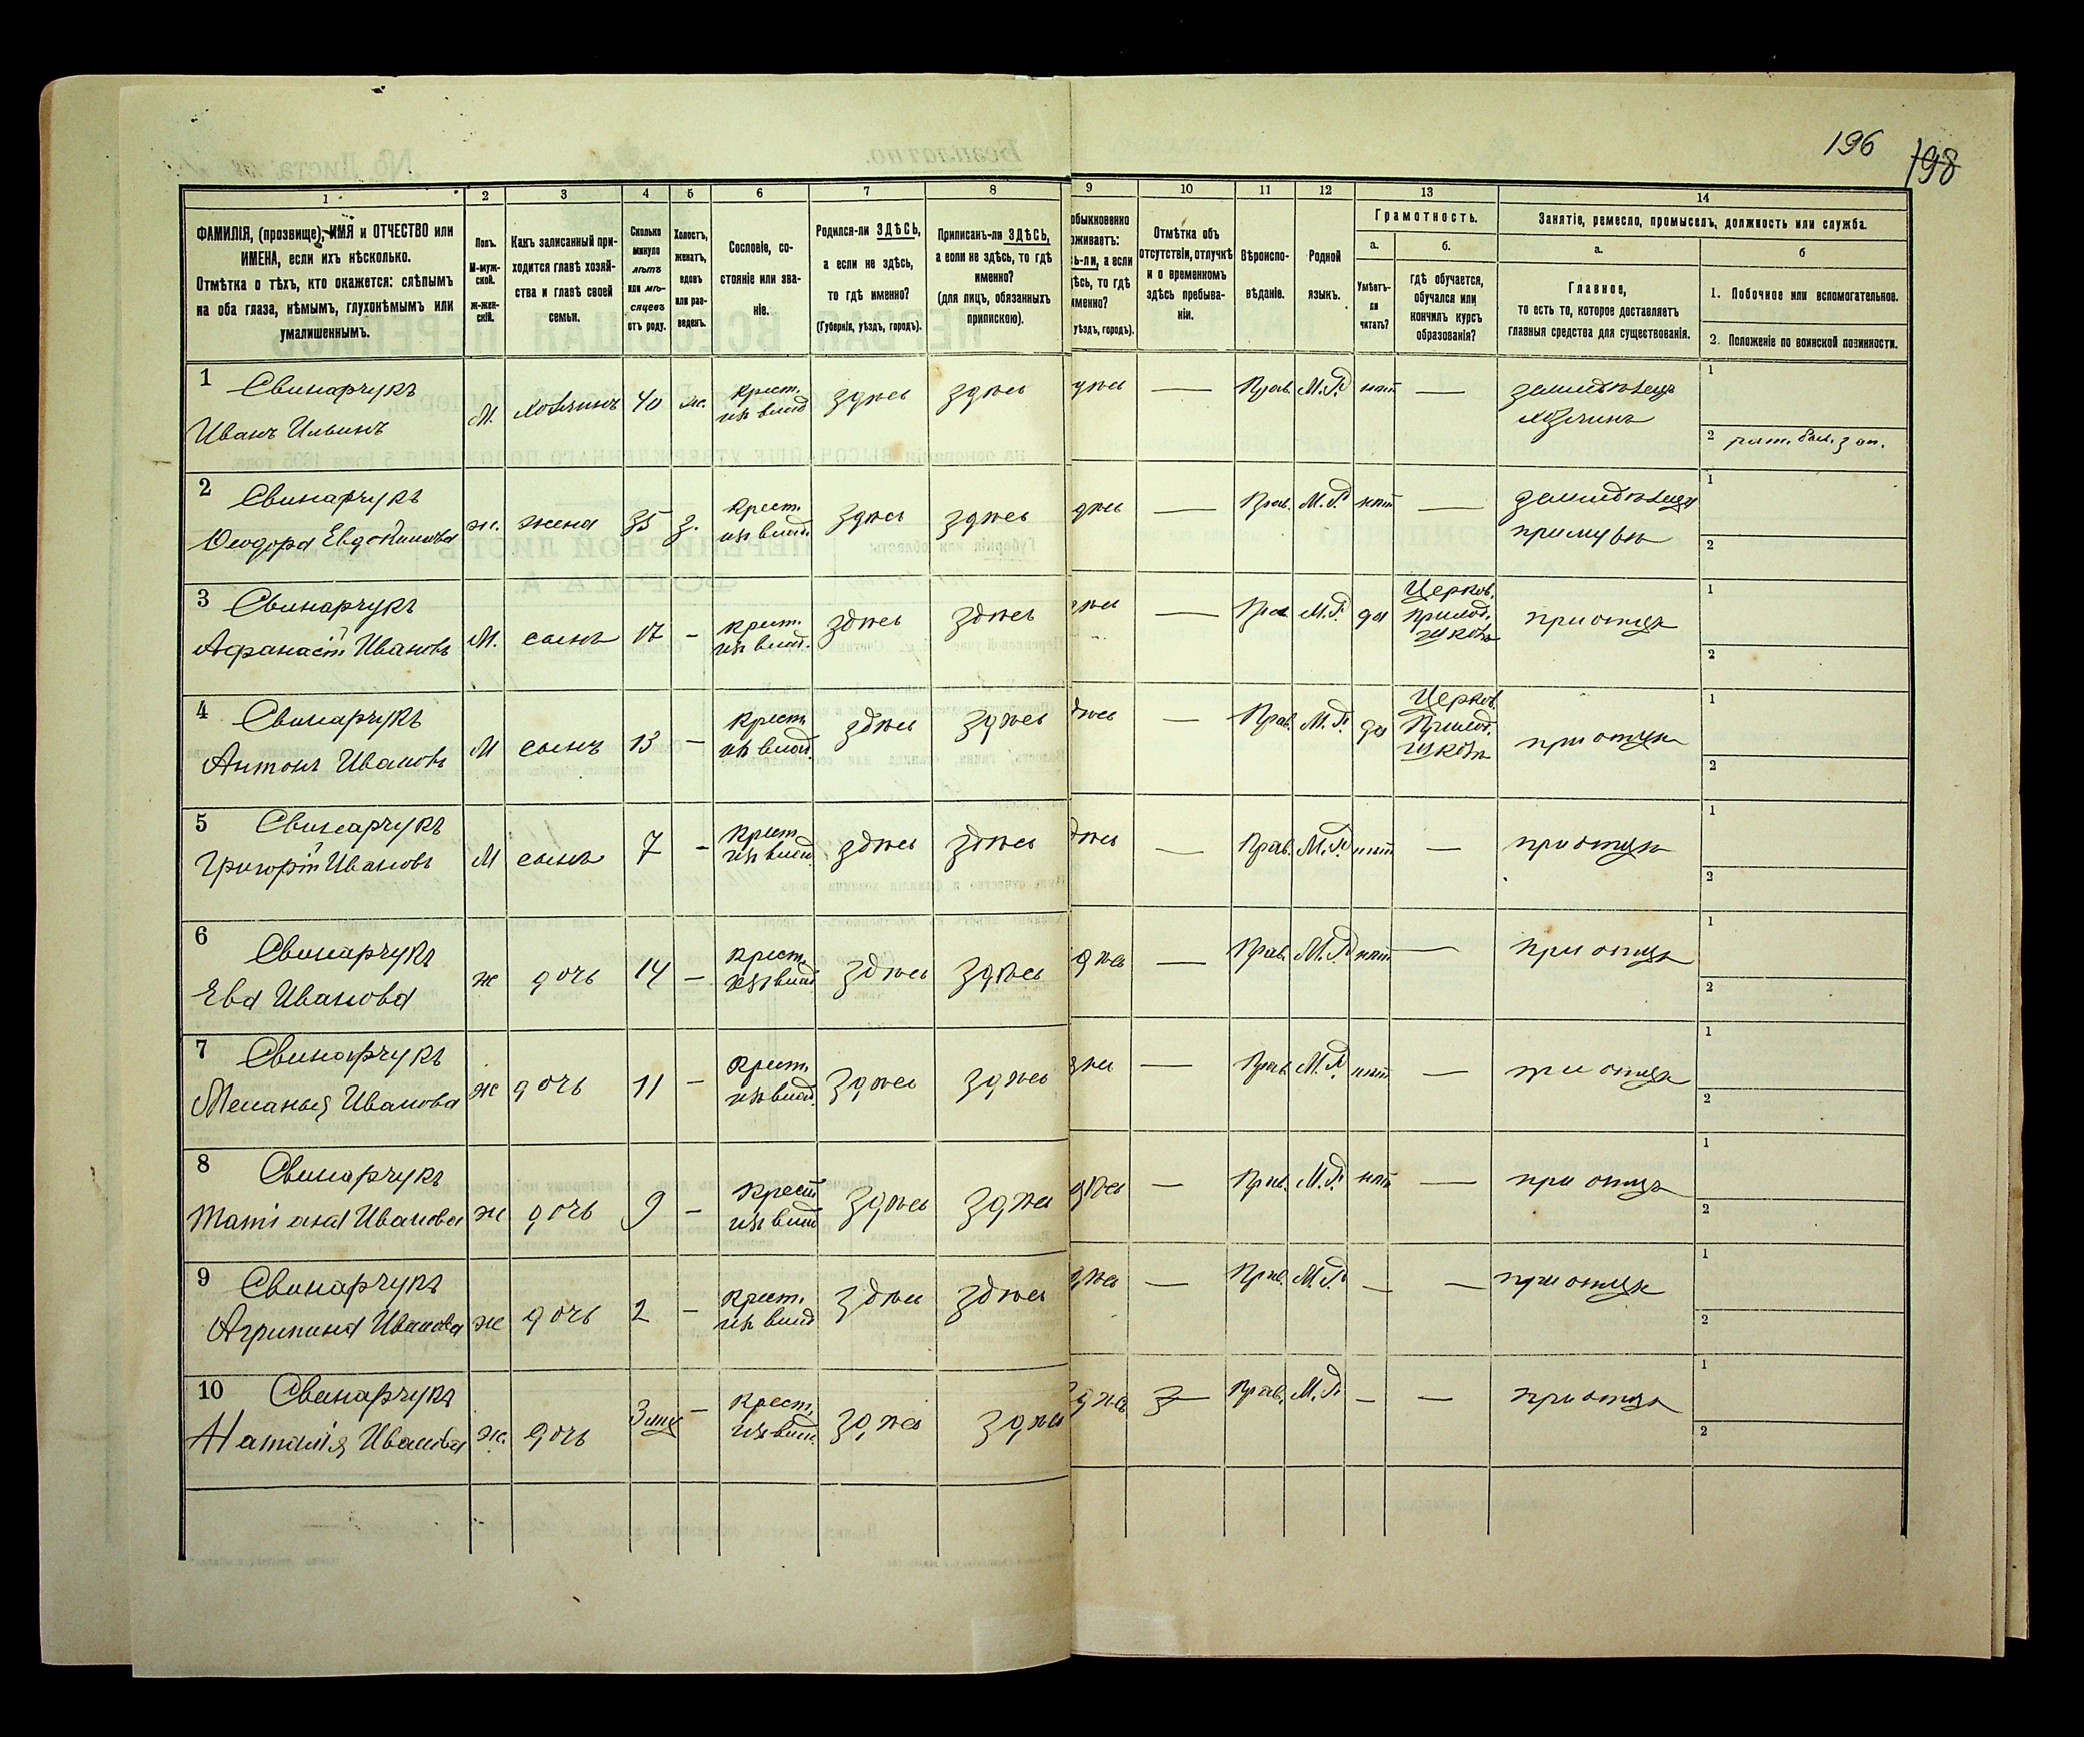 196
198
1
2
3
4
5
6
7
8
9
10
11
12
13
14
ФАМИЛІЯ, (прозвище), ИМЯ и ОТЧЕСТВО или
ИМЕНА, если ихъ нѣсколько.
Отмѣтка о тѣхъ, кто окажется: слѣпымъ
на оба глаза, нѣмымъ, глухонѣмымъ или
умалишеннымъ.
Полъ.
М-муж-
ской.
ж-жен-
скій.
Какъ записанный при-
ходится главѣ хозяй-
ства и главѣ своей
семьи.
Сколько
минуло
лѣтъ
или мѣ-
сяцевъ
отъ роду.
Холостъ,
женатъ,
вдовъ
или раз-
веденъ.
Сословіе, со-
стояніе или зва-
ніе.
Родился-ли ЗДѢСЬ,
а если не здѣсь,
то гдѣ именно?
(Губернія, уѣздъ, городъ).
Приписанъ-ли ЗДѢСЬ,
а если не здѣсь, то гдѣ
именно?
(для лицъ, обязанныхъ
припискою).
обыкновенно
оживаетъ:
ь-ли, а если
ѣсь, то гдѣ
именно?
уѣздъ, городъ).
Отмѣтка объ
отсутствіи, отлучкѣ
и о временномъ
здѣсь пребыва-
ніи.
Вѣроиспо-
вѣданіе.
Родной
языкъ.
Грамотность.
а.
Умѣетъ-
ли
читать?
б.
гдѣ обучается,
обучался или
кончилъ курсъ
образованія?
Занятіе, ремесло, промыселъ, должность или служба.
а.
Главное,
то есть то, которое доставляетъ
главныя средства для существованія.
б
1. Побочное или вспомогательное.
2. Положеніе по воинской повинности.
1 Свинарчукъ
Иванъ Ильинъ
М. хозяинъ 40 ж. крест. изъ влад здѣсь здѣсь дѣсь — Прав. М.Р. нѣт — земледѣлецъ
хозяинъ
1
2 рат. опол. зап.
2 Свинарчукъ
Ѳеодора Евдокимова
ж. жена 35 з. крест. изъ влад. здѣсь здѣсь дѣсь — Прав. М.Р. нѣт — земледѣлецъ
при мужѣ
1
2
3 Свинарчукъ
Афанасій Ивановъ
М. сынъ 17 - крест. изъ влад. здѣсь здѣсь — Прав М.Р. да Церков. приход. школѣ при отцѣ
1
2
4 Свинарчукъ
Антонъ Ивановъ
М сынъ 13 — крест изъ влад. здѣсь здѣсь дѣсь — Прав. М.Р. да Церков. Приход. школѣ при отцѣ
1
2
5 Свинарчукъ
Григорій Ивановъ
М сынъ 7 - крест. изъ влад. здѣсь здѣсь дѣсь — Прав. М.Р. нѣт — при отцѣ
1
2
6 Свинарчукъ
Ева Иванова
ж дочь 14 — крест. изъ влад здѣсь здѣсь дѣсь — Прав. М.Р. нѣт — при отцѣ
1
2
7 Свинарчукъ
Меланья Иванова
ж дочь 11 — крест. изъ влад. здѣсь здѣсь — Прав М.Р. нѣт — при отцѣ
1
2
8 Свинарчукъ
Татіана Иванова
ж дочь 9 — крест изъ влад здѣсь здѣсь дѣсь — Прав. М.Р. нѣт — при отцѣ
1
2
9 Свинарчукъ
Агрипина Иванова
ж дочь 2 — крест. изъ влад здѣсь здѣсь дѣсь — Прав. М.Р. — — при отцѣ
1
2
10 Свинарчукъ
Наталія Иванова
ж. дочь 3 мц — крест. изъ влад. здѣсь здѣсь дѣсь — Прав. М.Р. — — при отцѣ
1
2